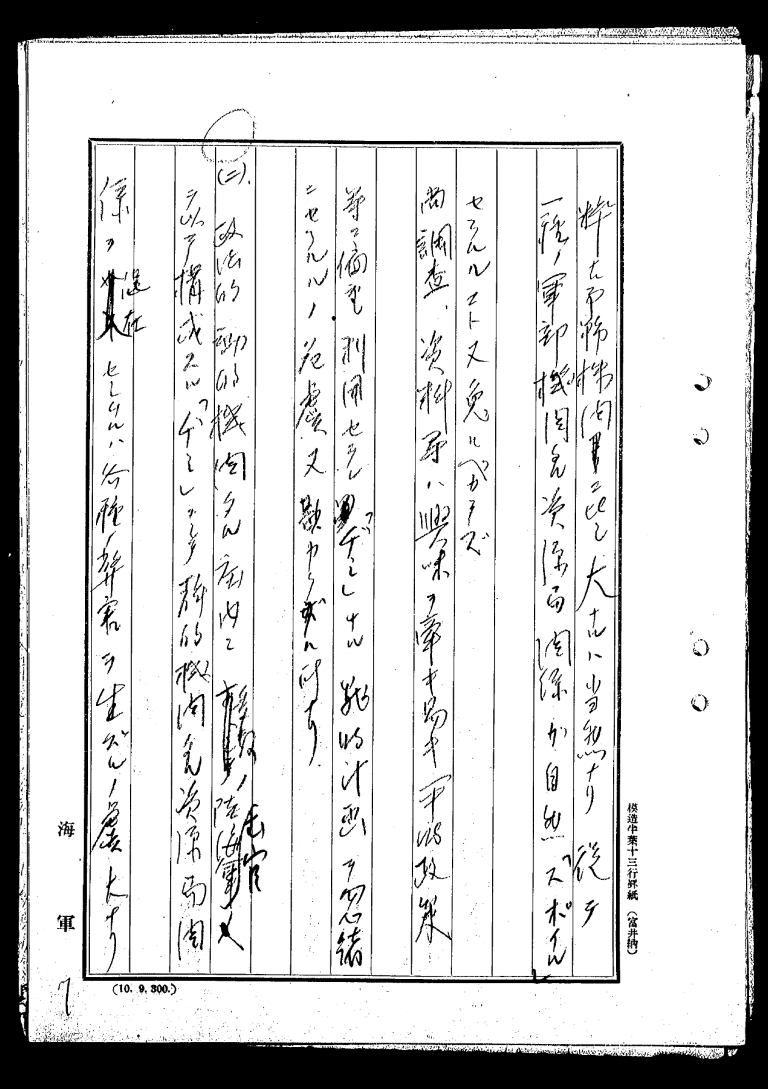 粋ナル希弥機関ニ比シ大ナルハ当然ナリ 従テ
一種ノ軍部機関タル資源局関係ガ自然「スポイル」
セラルルコト又免ルベカラズ
尚調査、資料等ハ興味ヲ牽キ易キ平時政策
等ニ偏重利用セラレ「ヂミ」ナル戦時計画ヲ忽諸
ニセラルルノ危虞又尠ナカラザル所ナリ
(二)、政治的動的機関タル庄内ニ多数ノ陸海軍武官
ヲ以テ構成スル「ヂミ」ナル静的機関タル資源局関
係ヲ混在セシムルハ各種ノ弊害ヲ生ズルノ虞大ナリ
模造半葉十三行罫紙 (富井納)
海軍
(10. 9. 300.)
7